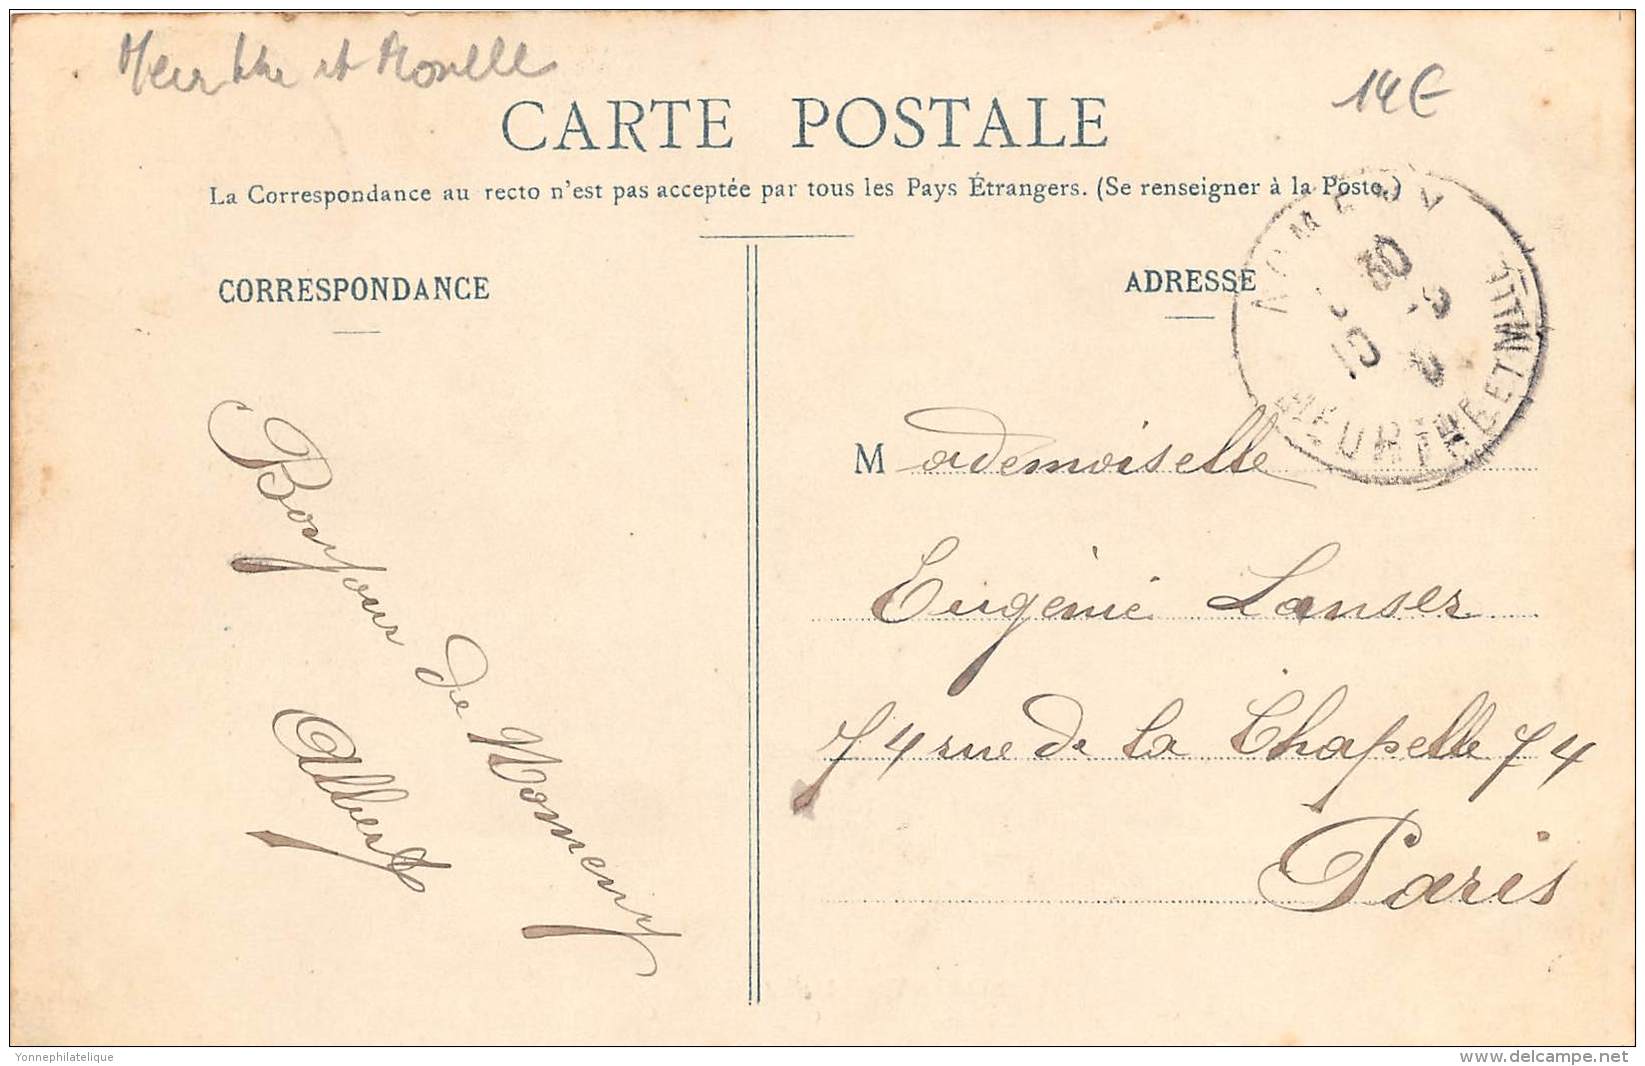 Meurthe et Moselle
14€
CARTE POSTALE
La Correspondance au recto n'est pas acceptée par tous les Pays Étrangers. (Se renseigner à la Poste.)
CORRESPONDANCE
ADRESSE
NOMENY
30
10
MEURTHE ET M
Bonjour de Nomeny
Albert
Mademoiselle
Eugénie Lanser
74 rue de la Chapelle 74
Paris
Yonnephilatelique
www.delcampe.net